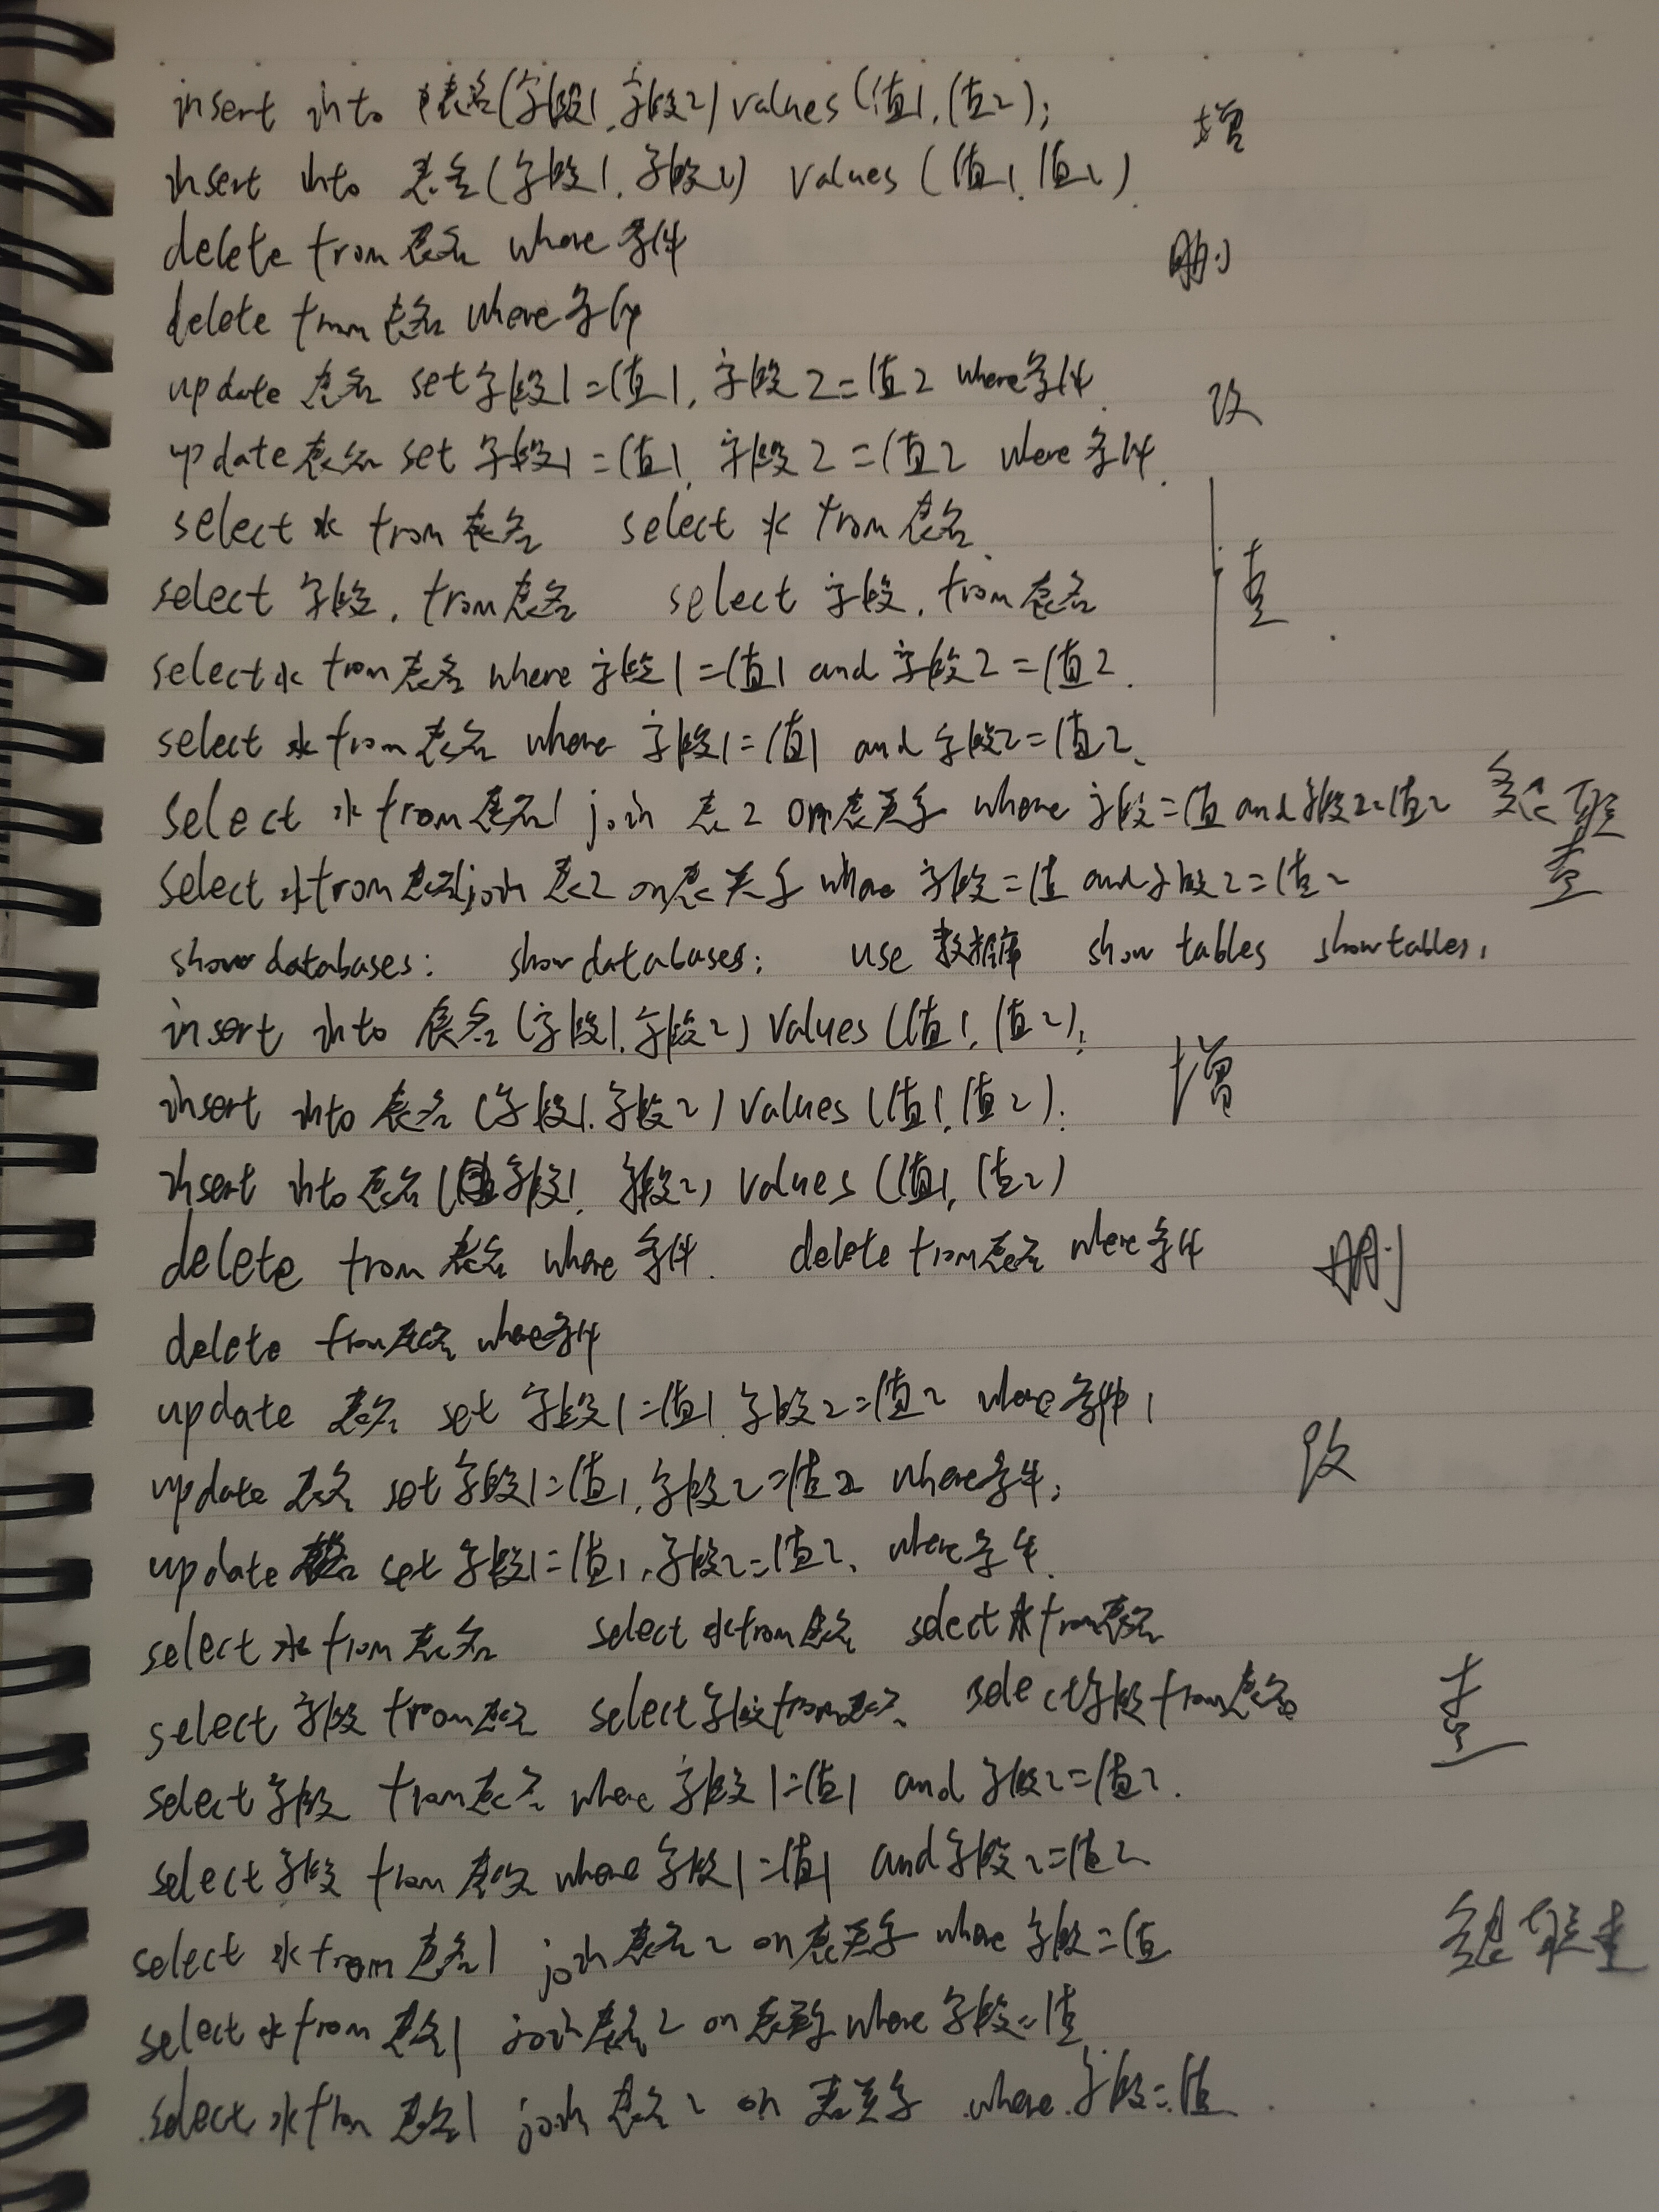 insert into 表名(字段1,字段2) values (值1,值2); 增
insert into 表名(字段1,字段2) values (值1,值2).
delete from 表名 where 条件 删
delete from 表名 where 条件
update 表名 set 字段1=值1, 字段2=值2 where条件. 改
update 表名 set 字段1=值1, 字段2=值2 where 条件.
select * from 表名 select * from 表名.
select 字段, from 表名 select 字段, from 表名 查
select * from 表名 where 字段1=值1 and 字段2=值2.
select * from 表名 where 字段1=值1 and 字段2=值2.
select * from 表名1 join 表2 on 表关系 where 字段=值 and 字段2=值2 多表联
select * from 表名1 join 表2 on 表关系 where 字段=值 and 字段2=值2 查
show databases: show databases; use 数据库 show tables show tables,
insert into 表名 (字段1,字段2) values (值1,值2);
insert into 表名 (字段1.字段2) values (值1,值2). 增
insert into 表名 (字段1, 字段2) values (值1, 值2)
delete from 表名 where 条件. delete from 表名 where 条件 删
delete from 表名 where条件
update 表名 set 字段1=值1, 字段2=值2 where 条件1
update 表名 set 字段1=值1,字段2=值2 where条件; 改
update 表名 set 字段1=值1,字段2=值2, where条件.
select * from 表名 select * from 表名 select * from 表名
select 字段 from 表名 select 字段 from 表名 select 字段 from 表名 查
select 字段 from 表名 where 字段1=值1 and 字段2=值2.
select 字段 from 表名 where 字段1=值1 and 字段2=值2
select * from 表名1 join 表名2 on 表关系 where 字段=值 多表联查
select * from 表名1 join 表名2 on 表关系 where 字段=值
select * from 表名1 join 表名2 on 表关系 where 字段=值